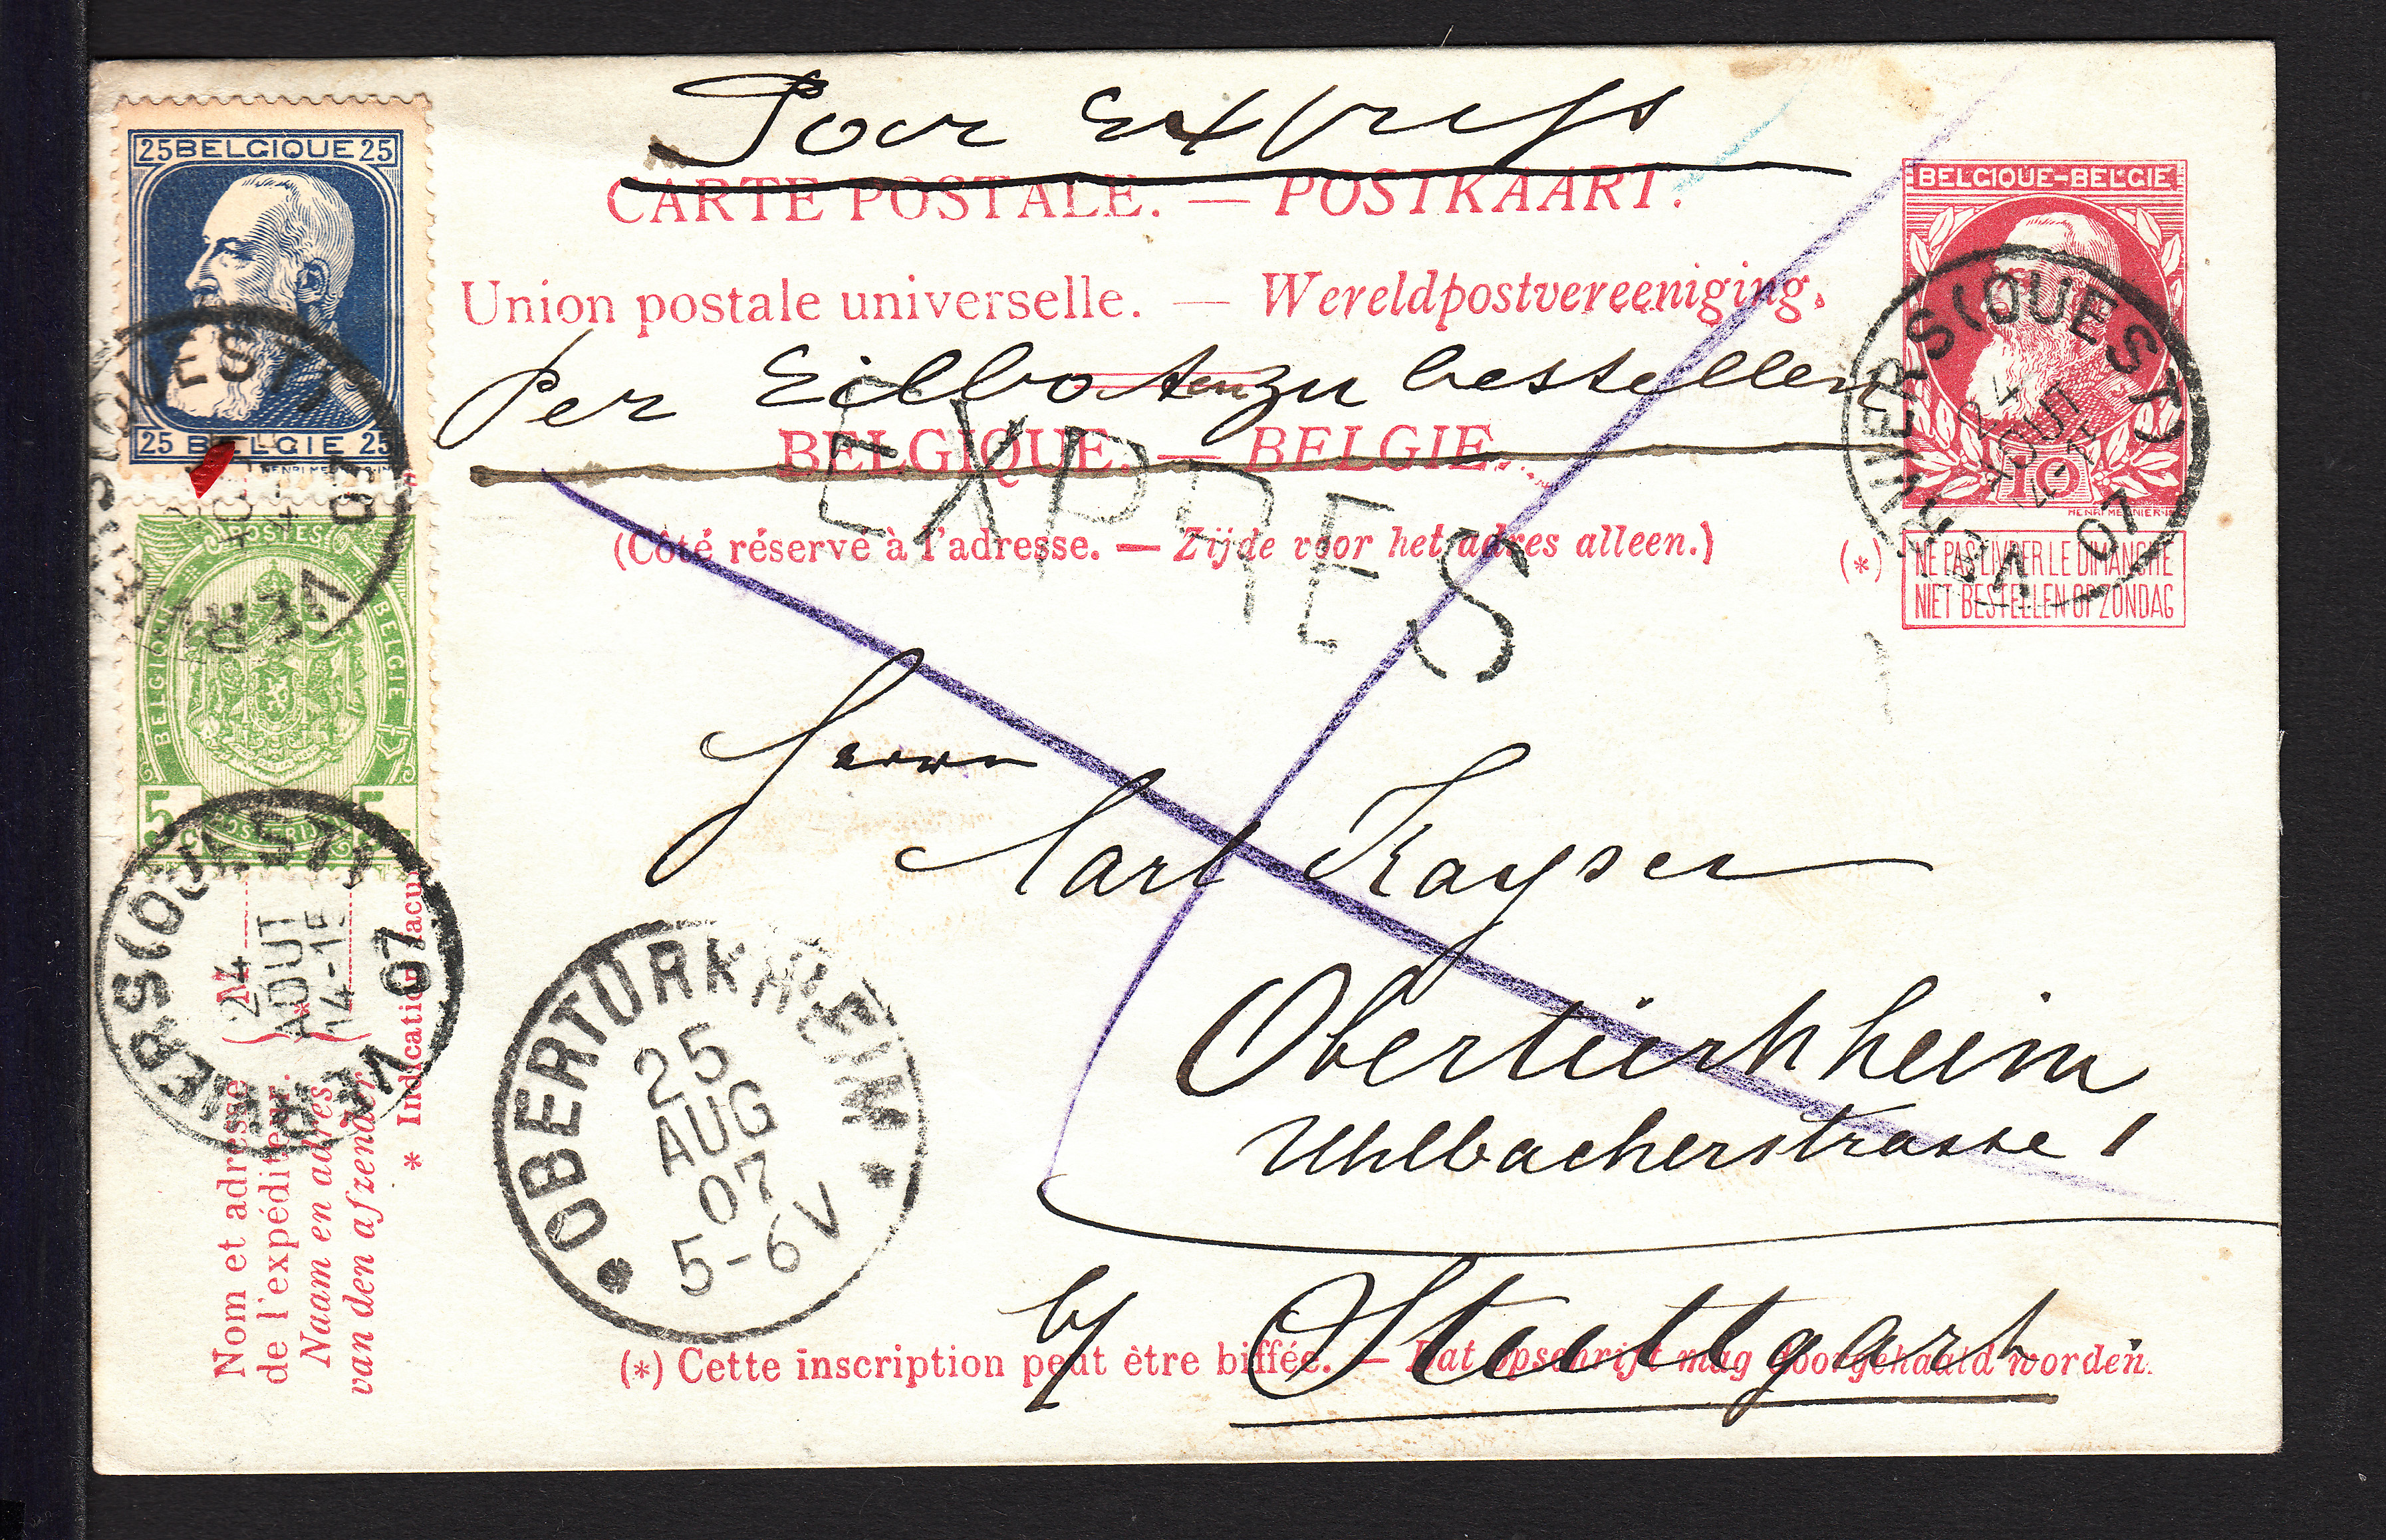 Pour Express
CARTE POSTALE. — POSTKAART.
Union postale universelle. — Wereldpostvereeniging.
Per Eilboten zu bestellen
BELGIQUE. — BELGIE.
EXPRES
(Côté réservé à l'adresse. — Zijde voor het adres alleen.)
Herrn
Carl Kayser
Obertürkheim
Uhlbacherstrasse 1
by Stuttgart
(*) Cette inscription peut être biffée. — Dat opschrift mag doorgehaald worden.
25 BELGIQUE 25
25 BELGIE 25
POSTES
BELGIQUE
BELGIE
5 5
POSTERIJEN
VERVIERS (OUEST)
24
AOUT
14-15
07
VERVIERS (OUEST)
07
OBERTÜRKHEIM
25
AUG
07
5-6V
BELGIQUE-BELGIE
10
HENRI MEUNIER-IN
VERVIERS (OUEST)
24
AOUT
14-15
07
(*)
NE PAS LIVRER LE DIMANCHE
NIET BESTELLEN OP ZONDAG
Nom et adresse
de l'expéditeur.
Naam en adres
van den afzender
M
* Indication